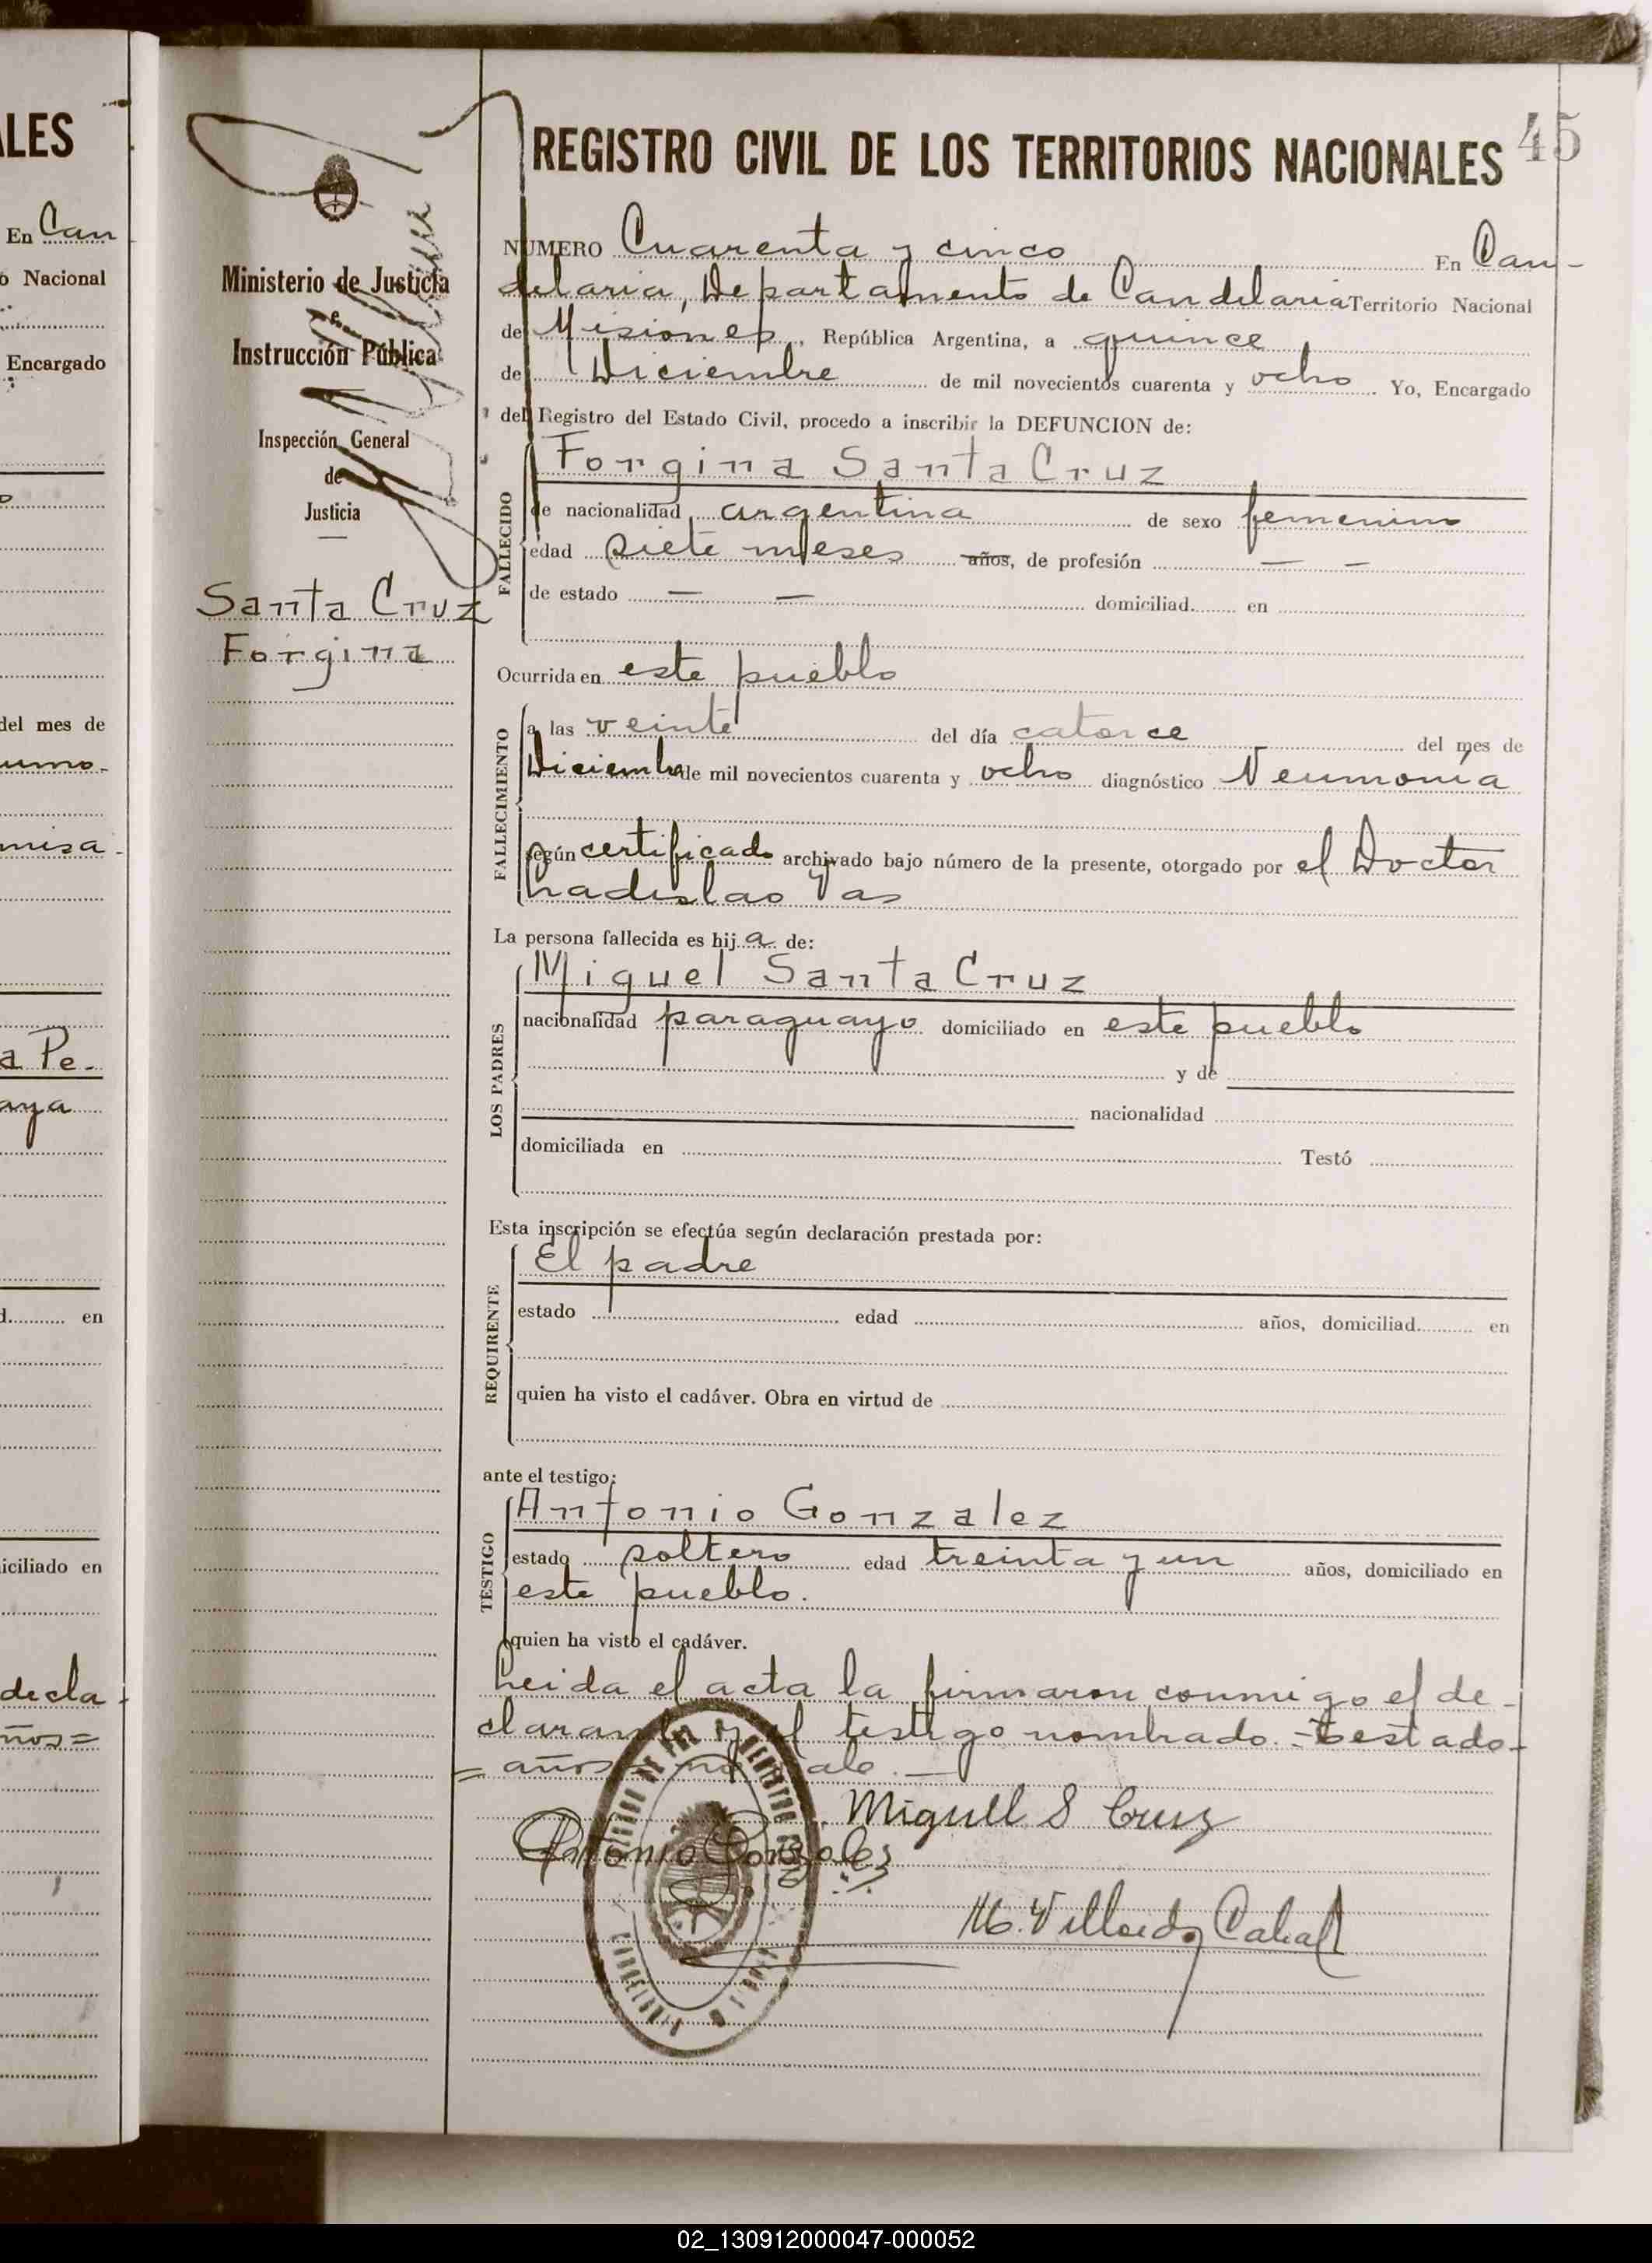 LES
En Can
o Nacional
Encargado
del mes de
misa
a Pe-
aya
en
iciliado en
decla-
45
REGISTRO CIVIL DE LOS TERRITORIOS NACIONALES
Ministerio de Justicia
e
Instrucción Pública
Inspección General
de
Justicia
Santa Cruz
Forgina
NUMERO Cuarenta y cinco En Can-
delaria, Departamento de Candelaria Territorio Nacional
de Misiones, República Argentina, a quince
de Diciembre de mil novecientos cuarenta y ocho Yo, Encargado
del Registro del Estado Civil, procedo a inscribir la DEFUNCION de:
FALLECIDO
Forgina Santa Cruz
de nacionalidad argentina de sexo femenino
edad siete meses años, de profesión — —
de estado — — domiciliad en
Ocurrida en este pueblo
FALLECIMIENTO
a las veinte del día catorce del mes de
Diciembre de mil novecientos cuarenta y ocho diagnóstico Neumonía
según certificado archivado bajo número de la presente, otorgado por el Doctor
Ladislao
La persona fallecida es hija de:
LOS PADRES
Miguel Santa Cruz
nacionalidad paraguayo domiciliado en este pueblo
y de
nacionalidad
domiciliada en Testó
Esta inscripción se efectúa según declaración prestada por:
REQUIRENTE
El padre
estado edad años, domiciliad en
quien ha visto el cadáver. Obra en virtud de
ante el testigo:
TESTIGO
Antonio Gonzalez
estado soltero edad treinta y un años, domiciliado en
este pueblo.
quien ha visto el cadáver.
Leida el acta la firmaron conmigo el de-
clarante y el testigo nombrado.-testado-
=años= no vale.-
Miguell S Cruz
Antonio Gonzales
02_130912000047-000052